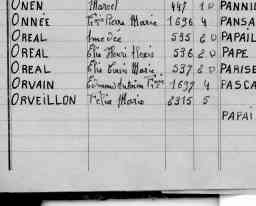 ONEN Marcel 447 10 PANNIE
ONNÉE Pierre Marie 1636 4 PANSA
ORÉAL Amedée 535 20 PAPAIL
ORÉAL Elie Henri Alexis 536 20 PAPE
ORÉAL Elie Louis Marie 537 20 PARISE
ORVAIN 1637 4 PASCA
ORVEILLON Félix Marie 8315 5
PAPAI